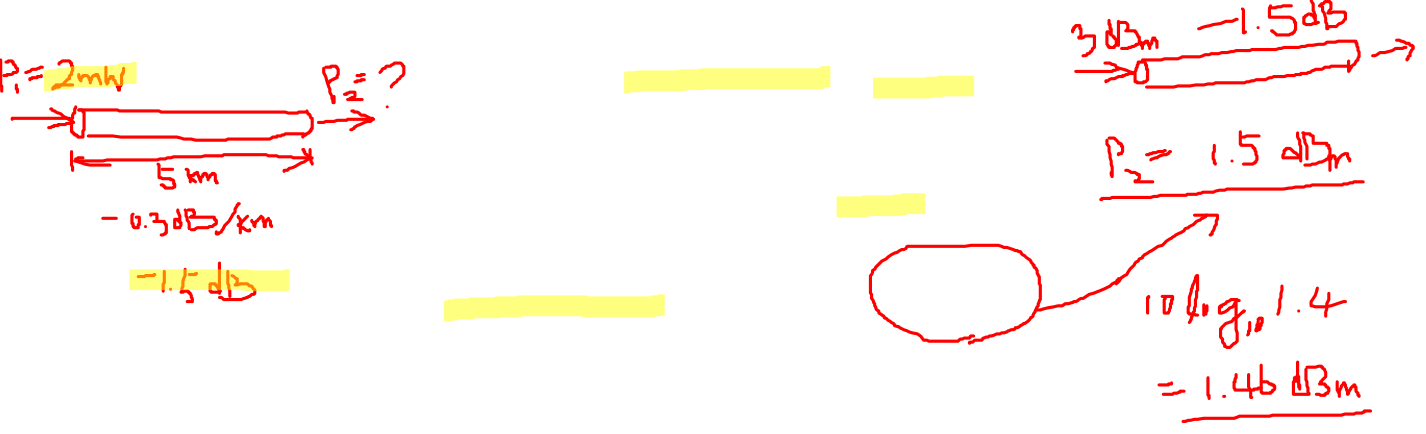 P₁ = 2mW
P₂ = ?
5 km
- 0.3 dB/km
-1.5 dB
3 dBm -1.5 dB
P₂ = 1.5 dBm
10 log₁₀ 1.4
= 1.46 dBm